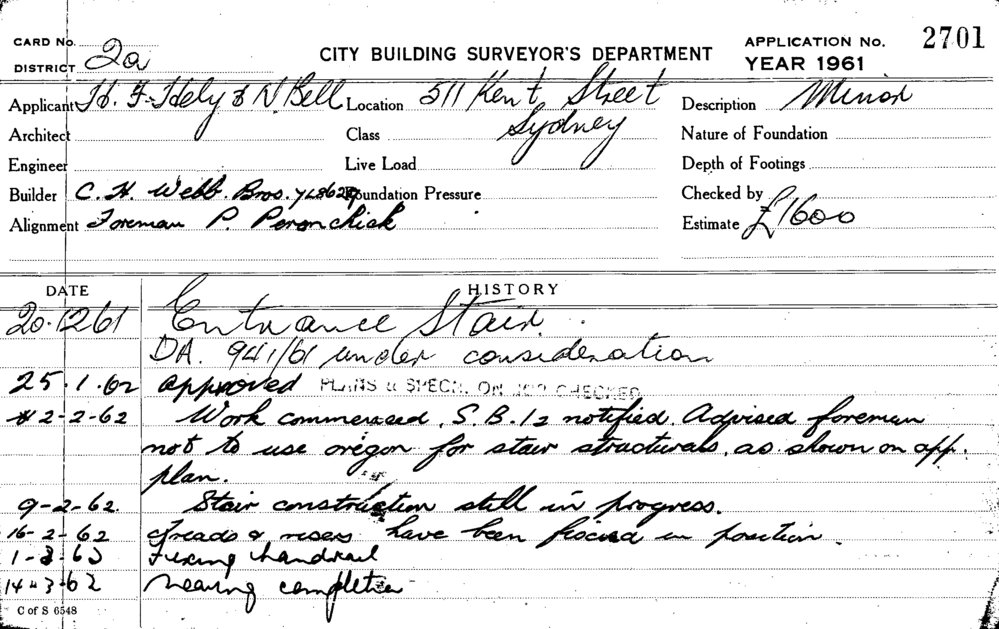 CARD No. 2a
DISTRICT
CITY BUILDING SURVEYOR'S DEPARTMENT
APPLICATION No. 2701
YEAR 1961
Applicant H. F. Hely & N Bell Location 511 Kent Street Description Minor
Architect Class Sydney Nature of Foundation
Engineer Live Load Depth of Footings
Builder C. H. Webb Bros. Foundation Pressure Checked by
Alignment Foreman P. Peronchick Estimate £1600
DATE HISTORY
20.12 61 Entrance Stair.
DA. 941/61 under consideration
25.1.62 approved PLANS & SPECN. ON JOB CHECKED
2-2-62 Work commenced, S.B. 12 notified. Advised foreman
not to use oregon for stair structurals, as shown on app.
plan.
9-2-62. Stair construction still in progress.
16-2-62 Treads & risers have been fixed in position.
1-3-63 Fixing handrail
14-3-62 Nearing completion
C of S 6548